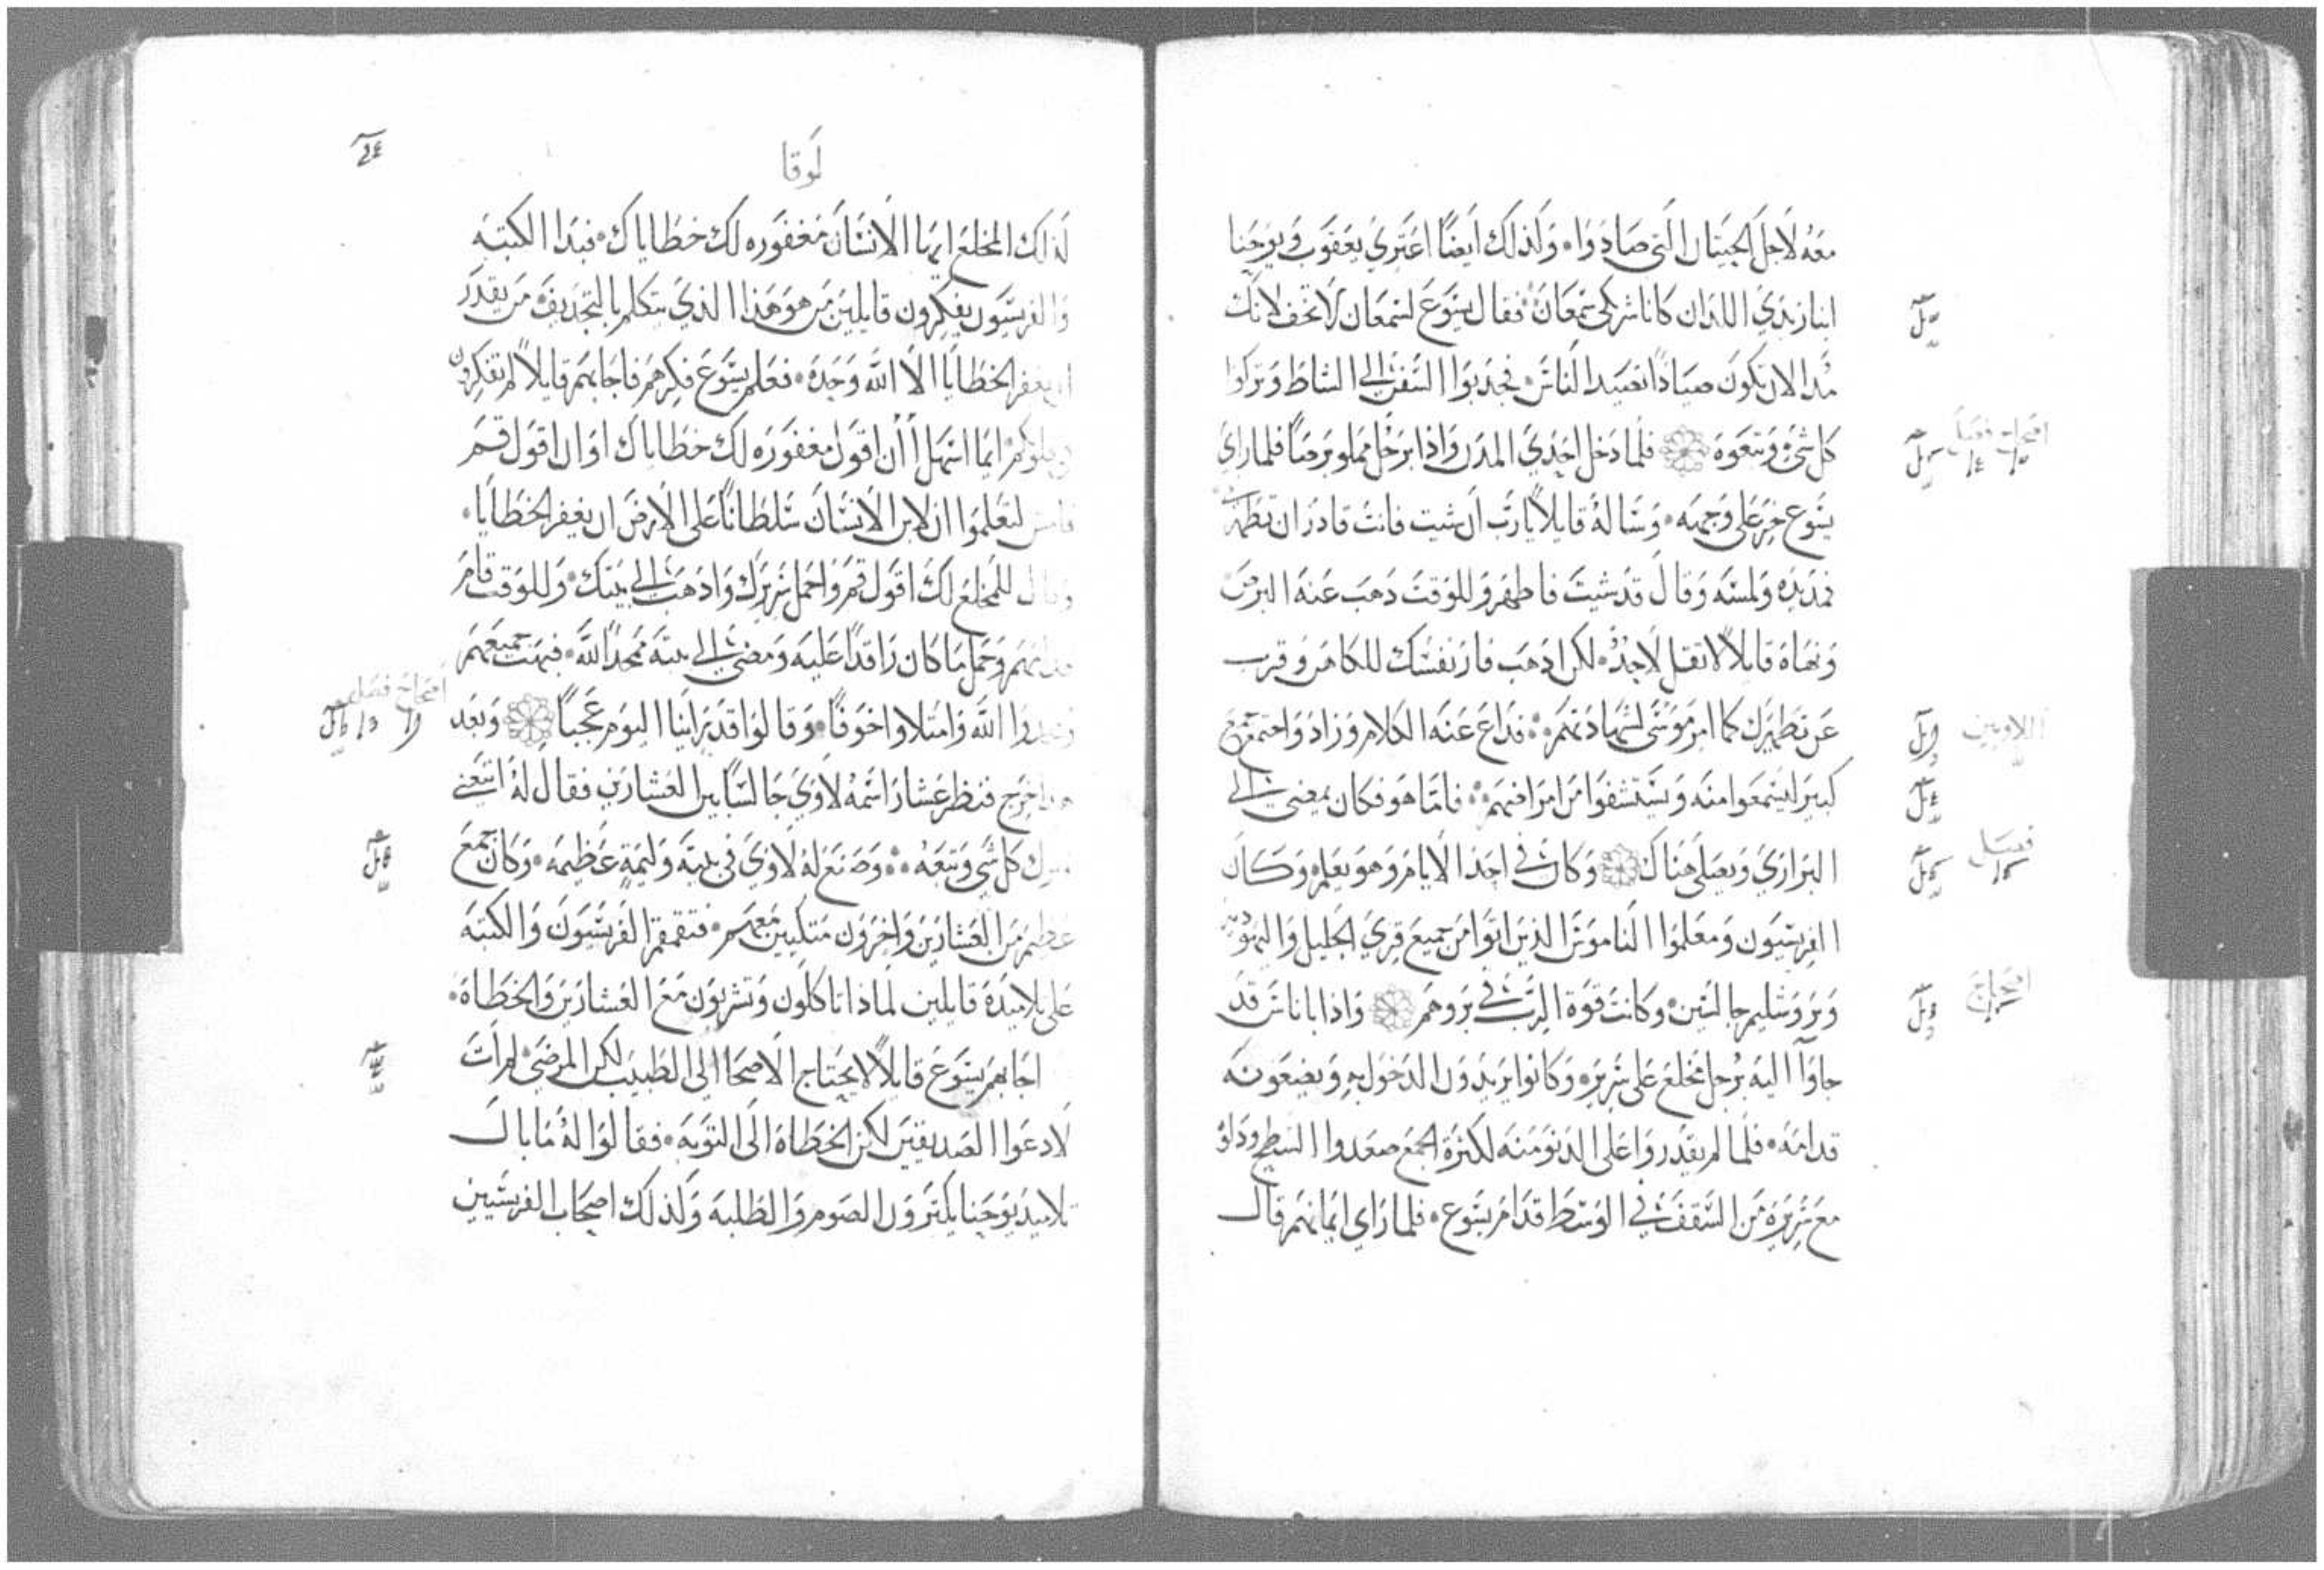 معه لاجل الحيتان التي صادوا ولذلك ايضا اعتري يعقوب ويوحنا
ابنا زبدي اللذان كانا شركي سمعان فقال يسوع لسمعان لا تخف لانك
مذ الان تكون صيادا تصيد الناس فجدبوا السفن الي الشاط وتركوا
كل شي وتبعوه فلما دخل احدي المدن واذا برجل مملو برصا فلما راي
يسوع خر علي وجهه وساله قايلا يارب ان شيت فانت قادر ان تطهرني
فمد يده ولمسه وقال قد شيت فاطهر وللوقت دهب عنه البرص
ونهاه قايلا لا تقل لاحد لكن ادهب فار نفسك للكاهن وقرب
عن تطهيرك كما امر موسي لشهادتهم فداع عنه الكلام وزاد واجتمع جمع
كبير ليسمعوا منه ويستشفوا من امراضهم فاما هو فكان يمضي الي
البراري ويصلي هناك وكان في احد الايام وهو يعلم وكان
الفريسيون ومعلموا الناموس الذين اتوا من جميع قري الجليل واليهودية
ويروشليم جالسين وكانت قوة الرب في بروهم واذا باناس قد
جاوا اليه برجل مخلع علي سرير وكانوا يريدون الدخول به ويضعونه
قدامه فلما لم يقدروا علي الدنو منه لكثرة الجمع صعدوا السطح ودلوه
مع سريره من السقف في الوسط قدام يسوع فلما راي ايمانهم قال
افتحاح فصل
اللاويين
فصل
افتحاح
لوقا
لذلك المخلع ايها الانسان مغفوره لك خطاياك فبدا الكتبه
والفريسيون يفكرون قايلين من هو هذا الذي يتكلم بالتجديف من يقدر
ان يغفر الخطايا الا الله وحده فعلم يسوع فكرهم فاجابهم قايلا لم تفكرون
في قلوبكم ايما اسهل أن اقول مغفوره لك خطاياك او ان اقول قم
فامش لتعلموا ان لابن الانسان سلطانا علي الارض ان يغفر الخطايا
وقال للمخلع لك اقول قم واحمل سريرك وادهب الي بيتك وللوقت قام
قدامهم وحمل ما كان راقدا عليه ومضي الي بيته ممجدا لله فبهت جميعهم
ومجدوا الله وامتلاوا خوفا وقالوا قد راينا اليوم عجبا وبعد
هذا خرج فنظر عشارا اسمه لاوي جالسا بين العشارين فقال له اتبعني
فترك كل شي وتبعه وصنع له لاوي في بيته وليمة عظيمه وكان جمع
عظيم من العشارين واخرون متكيين معهم فتقمقم الفريسيون والكتبه
علي تلاميده قايلين لماذا تاكلون وتشربون مع العشارين والخطاه
اجابهم يسوع قايلا لا يحتاج الاصحا الي الطبيب لكن المرضي لم ات
لادعوا الصديقين لكن الخطاة الي التوبه فقالوا له ما بال
تلاميد يوحنا يكترون الصوم والطلبه وكذلك اصحاب الفريسيين
افتحاح فصل